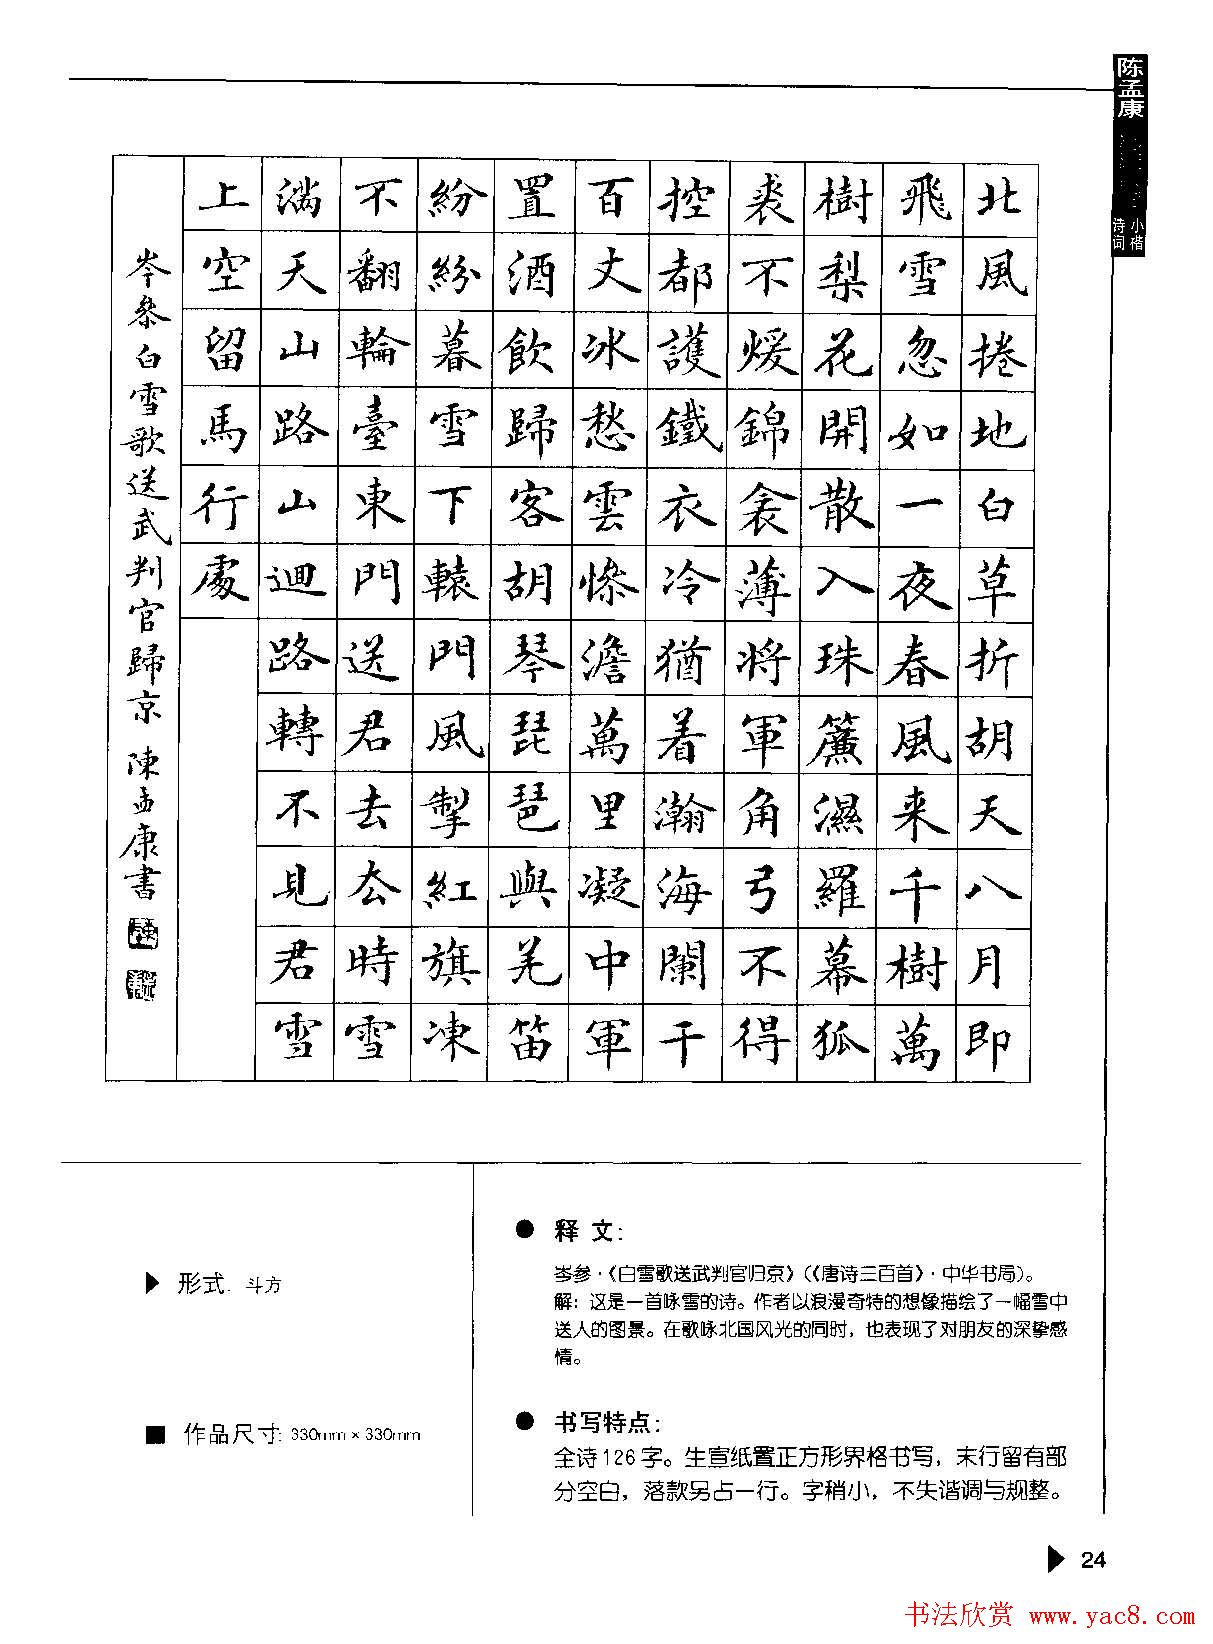 陈孟康
小楷
诗词
北風捲地白草折胡天八月即
飛雪忽如一夜春風来千樹萬
樹梨花開散入珠簾濕羅幕狐
裘不煖錦衾薄將軍角弓不得
控都護鐵衣冷猶着瀚海闌干
百丈冰愁雲慘澹萬里凝中軍
置酒飲歸客胡琴琵琶與羌笛
紛紛暮雪下轅門風掣紅旗凍
不翻輪臺東門送君去去時雪
滿天山路山迴路轉不見君雪
上空留馬行處
岑參白雪歌送武判官歸京 陳孟康書
形式. 斗方
作品尺寸: 330mm × 330mm
● 释 文:
岑参·《白雪歌送武判官归京》(《唐诗三百首》·中华书局)。
解: 这是一首咏雪的诗。作者以浪漫奇特的想像描绘了一幅雪中
送人的图景。在歌咏北国风光的同时, 也表现了对朋友的深挚感
情。
● 书写特点:
全诗126字。生宣纸置正方形界格书写, 末行留有部
分空白, 落款另占一行。字稍小, 不失谐调与规整。
24
书法欣赏 www.yac8.com